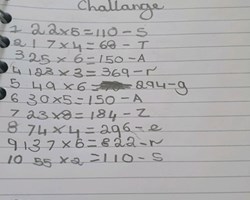 Challange
1 22x5=110-S
2 17x4=68-T
3 25x6=150-A
4 123x3=369-r
5 49x6= 294-g
6 30x5=150-A
7 23x8=184-Z
8 74x4=296-e
9 137x6=822-r
10 55x2=110-S